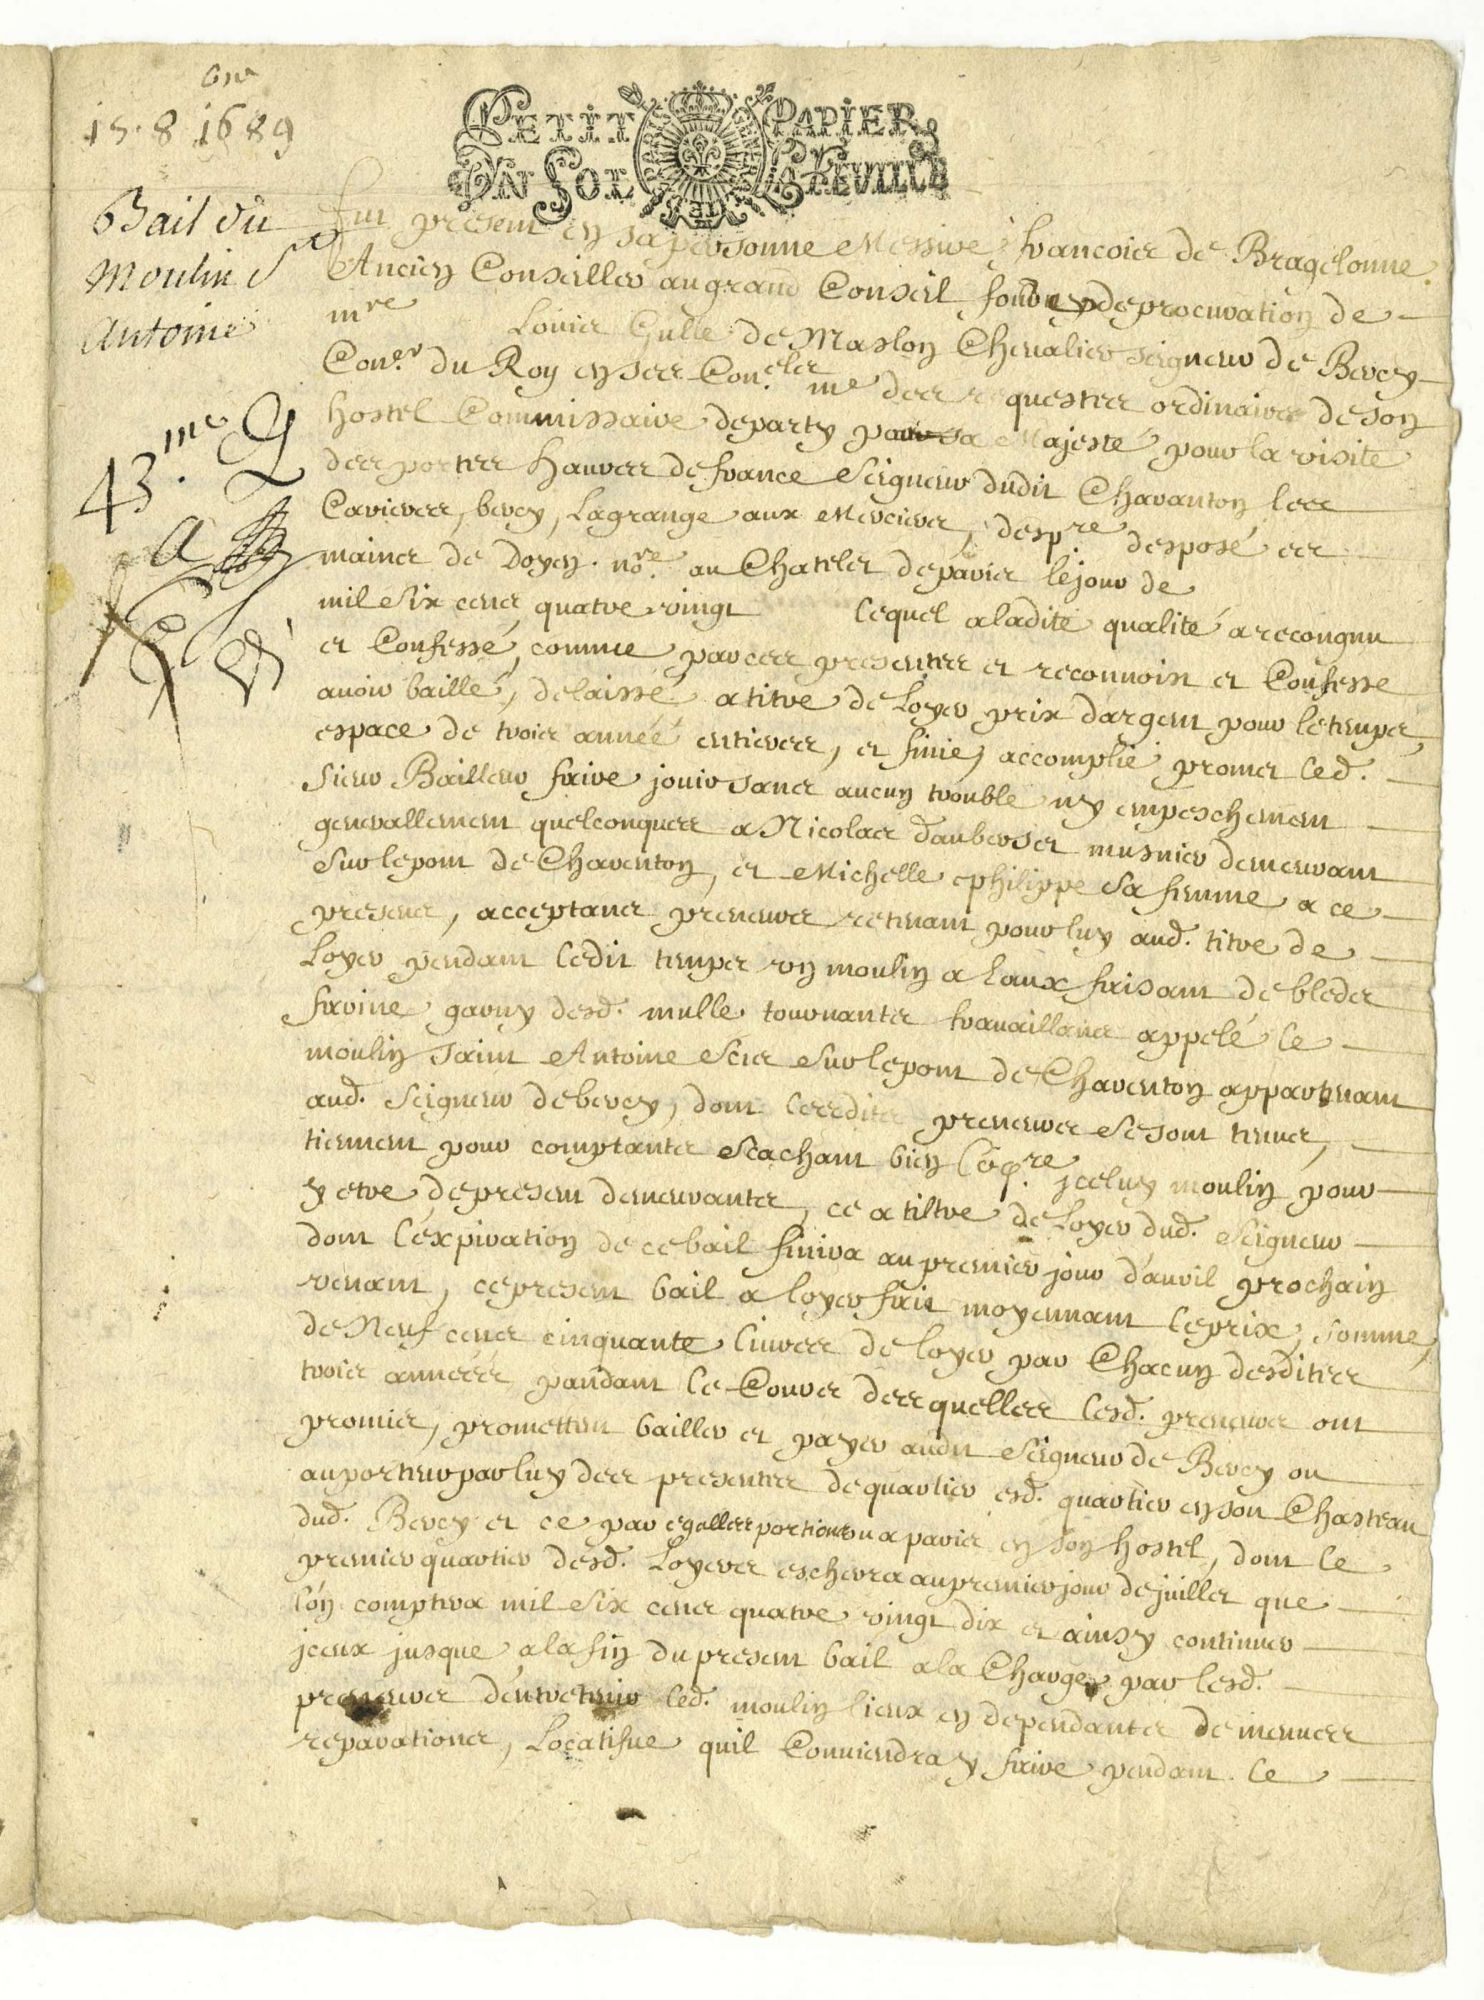 15. 8bre 1689
PETIT PAPIER
UN SOL LA FEUILLE
Bail du
Moulin St
Antoine
43.me
Fut present en sa personne Messire francois de Bragelonne
Ancien Conseiller au grand Conseil fondé de procuration de
mre Louis Guille de Maslon Chevalier seigneur de Bercy
Coner. du Roy en ses Con.els me des requestes ordinaires de son
hostel Commissaire departy par sa Majesté pour la visite
des portes havres de france Seigneur dudit Charanton les
Carieres, bercy, Lagrange aux Merciers, desp.re desposé es
mains de Doyen n.re au Chatelet de paris le jour de
mil six cens quatre vingt lequel a ladite qualité a recongnu
et Confessé, comme par ces presentes et reconnoist et Confesse
avoir baillé, delaissé a titre de Loyer prix dargent pour le temps
espace de trois année entieres, et finie, accomplie promet led.
sieur Bailleur faire jouir sans aucun trouble ny empeschement
generallement quelconques a Nicolas dauberset musnier demeurant
sur le pont de Charenton, et Michelle philippe sa femme a ce
presens, acceptans preneurs retenant pour luy aud. titre de
Loyer pendant ledit temps un moulin a Eaux faisant de bleds
farine garny desd. mulle tournantes travaillans appelé le
moulin saint Antoine scis sur le pont de Charenton appartenant
aud. Seigneur de bercy, dont lesdits preneurs se sont tenus,
tiennent pour comptantes scachant bien jceluy moulin pour
y etre de present demeurantes, ce a tiltre de Loyer dud. Seigneur
dont l'expiration de ce bail finira au premier jour d'avril prochain
venant, ce present bail a loyer fait moyennant le prix, somme,
de Neuf cens cinquante livres de loyer par Chacun desdites
trois années pandant le Cours desquelles lesd. preneurs ont
promis, promettent bailler et payer audit Seigneur de Bercy ou
au porteur par luy des presentes de quartier esd. quartier en son Chasteau
dud. Bercy et ce par egalles portions ou a paris en son hostel, dont le
premier quartier desd. Loyers eschera au premier jour de juillet que
lón comptera mil six cens quatre vingt dix et ainsy continuer
jceux jusque a la fin du present bail a la Charge par lesd.
preneurs d'entretenir led. moulin lieux en dependantes de menues
reparations, Locatifue quil Conviendra y faire pendant le